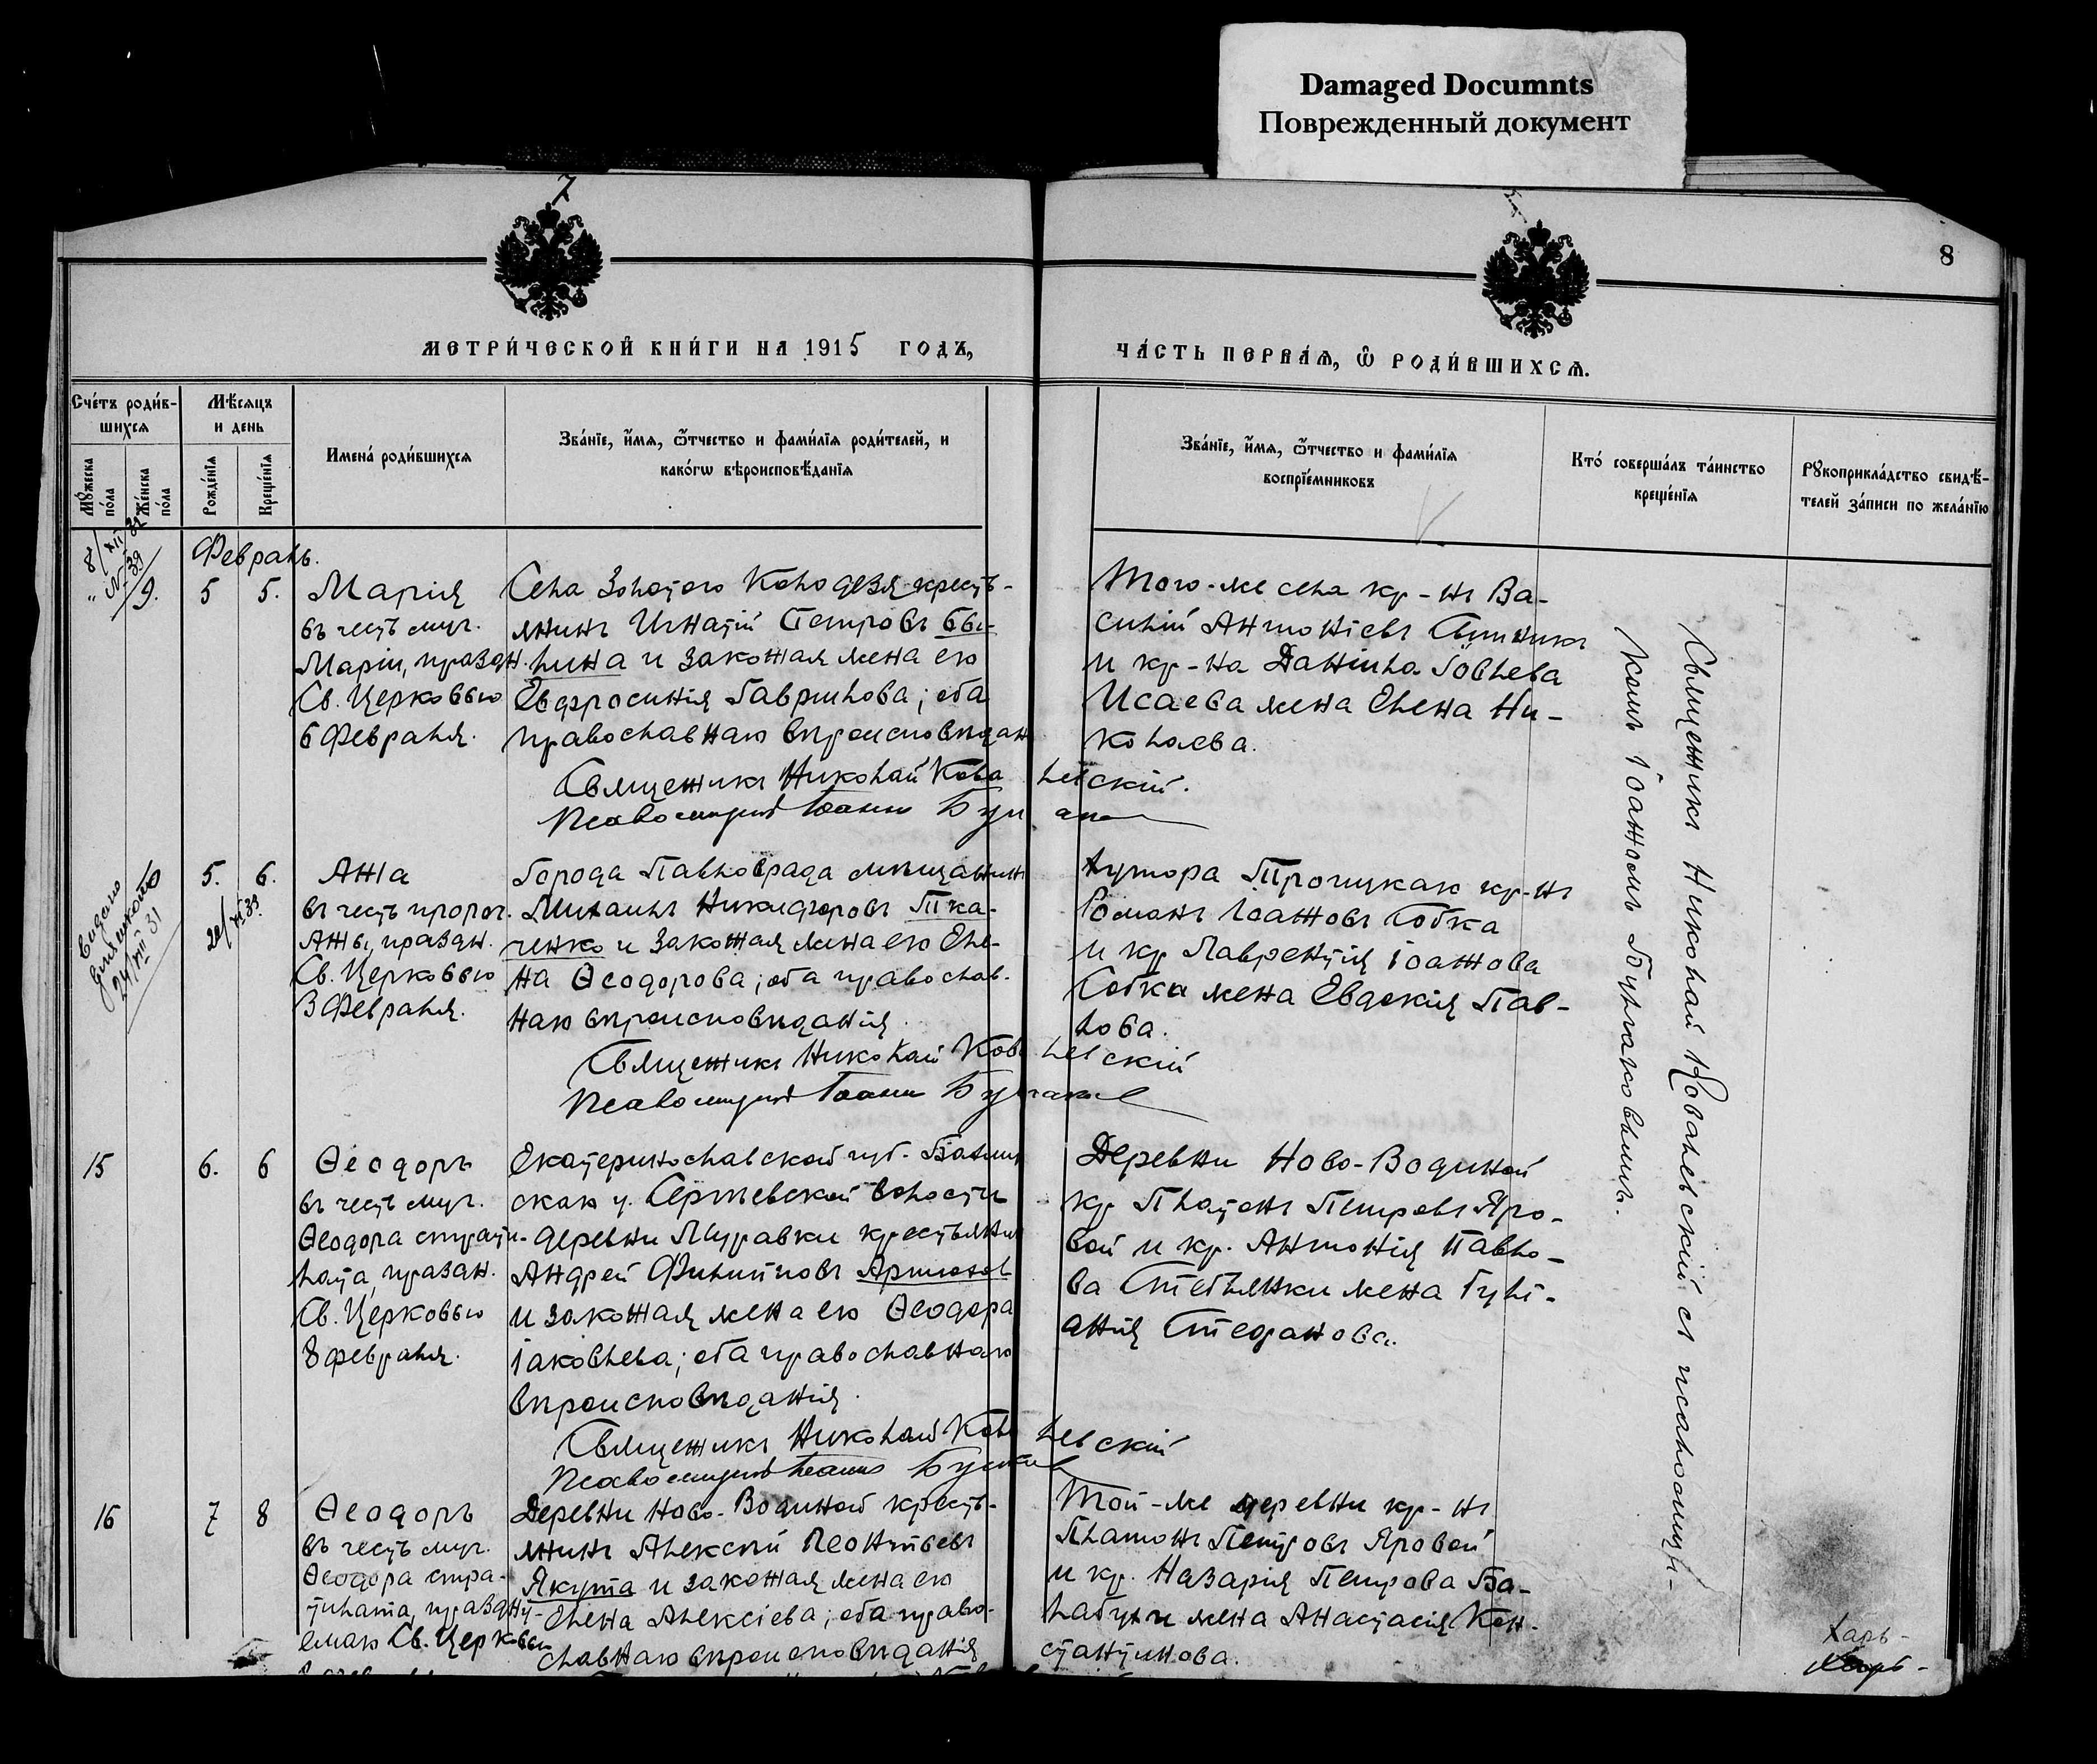 Damaged Documnts
Поврежденный документ
7
8
МЕТРИ́ЧЕСКОЙ КНИ́ГИ НА 1915 ГОДЪ,
ЧА́СТЬ ПЕРВА́Ѧ, Ѽ РОДИ́ВШИХСѦ.
Сче́тъ роди́в-
шихсѧ
Мꙋ́жеска
по́ла
Же́нска
по́ла
Мѣ́сѧцъ
и день
Рожде́нїѧ
Креще́нїѧ
Имена́ роди́вшихсѧ
Зва́нїе, и҆́мѧ, ѻ҆́тчество и фами́лїѧ роди́телей, и
како́гѡ вѣроисповѣ́данїѧ
Зва́нїе, и҆́мѧ, ѻ҆́тчество и фами́лїѧ
воспрїе́мниковъ
Кто́ соверша́лъ та́инство
креще́нїѧ
Рꙋкоприкла́дство свидѣ́-
телей за́писи по жела́нїю
Февраль.
9.
5
5.
Марія
въ честь муч.
Маріи, праздн.
Св. Церковью
6 Февраля.
Села Золотого Колодезя кресть-
янинъ Игнатій Петровъ Бы-
лина и законная жена его
Евфросинія Гаврилова; оба
православнаго вѣроисповѣдан
Священникъ Николай Ковалевскій.
Псаломщикъ Іоаннъ
Того-же села кр-нъ Ва-
силій Антоніевъ
и кр-на Даніила Іовлева
Исаева жена Елена Ни-
колаева.
Выдано
24/VII 31
5.
6.
Анна
въ честь пророч.
Анны, праздн.
Св. Церковью
3 Февраля.
Города Павлограда мѣщанинъ
Михаилъ Никифоровъ Тка-
ченко и законная жена его Еле-
на Ѳеодорова; оба православ-
наго вѣроисповѣданія.
Священникъ Николай Ковалевскій
Псаломщикъ Іоаннъ
Хутора Троицкаго кр-нъ
Романъ Іоанновъ Собка
и кр Лаврентія Іоаннова
Собки жена Евдокія Пав-
лова.
15
6.
6
Ѳеодоръ
въ честь муч.
Ѳеодора страти-
лата, праздн.
Св. Церковью
8 февраля.
Екатеринославской губ. Бахмут
скаго у. Сергіевской волости
деревни Муравки крестьянинъ
Андрей Филипповъ Артюхов
и законная жена его Ѳеодора
Іаковлева; оба православнаго
вѣроисповѣданія.
Священникъ Николай Ковалевскій
Псаломщикъ Іоаннъ
Деревни Ново-Водяной
кр Платонъ Петровъ Яро-
вой и кр. Антонія Павло-
ва Стеблянки жена Гулі-
анія Стефанова.
16
7
8
Ѳеодоръ
въ честь муч.
Ѳеодора стра-
тилата, праздну-
емаго Св. Церковью
Деревни Ново-Водяной кресть-
янинъ Алексѣй Леонтьевъ
Якута и законная жена его
Елена Алексіева; оба право-
славнаго вѣроисповѣданія
Той-же деревни кр-нъ
Платонъ Петровъ Яровой
и кр. Назарія Петрова Ба-
лабухи жена Анастасія Кон-
стантинова.
Священникъ Николай Ковалевскій съ псаломщи-
комъ Іоанномъ
Харь-